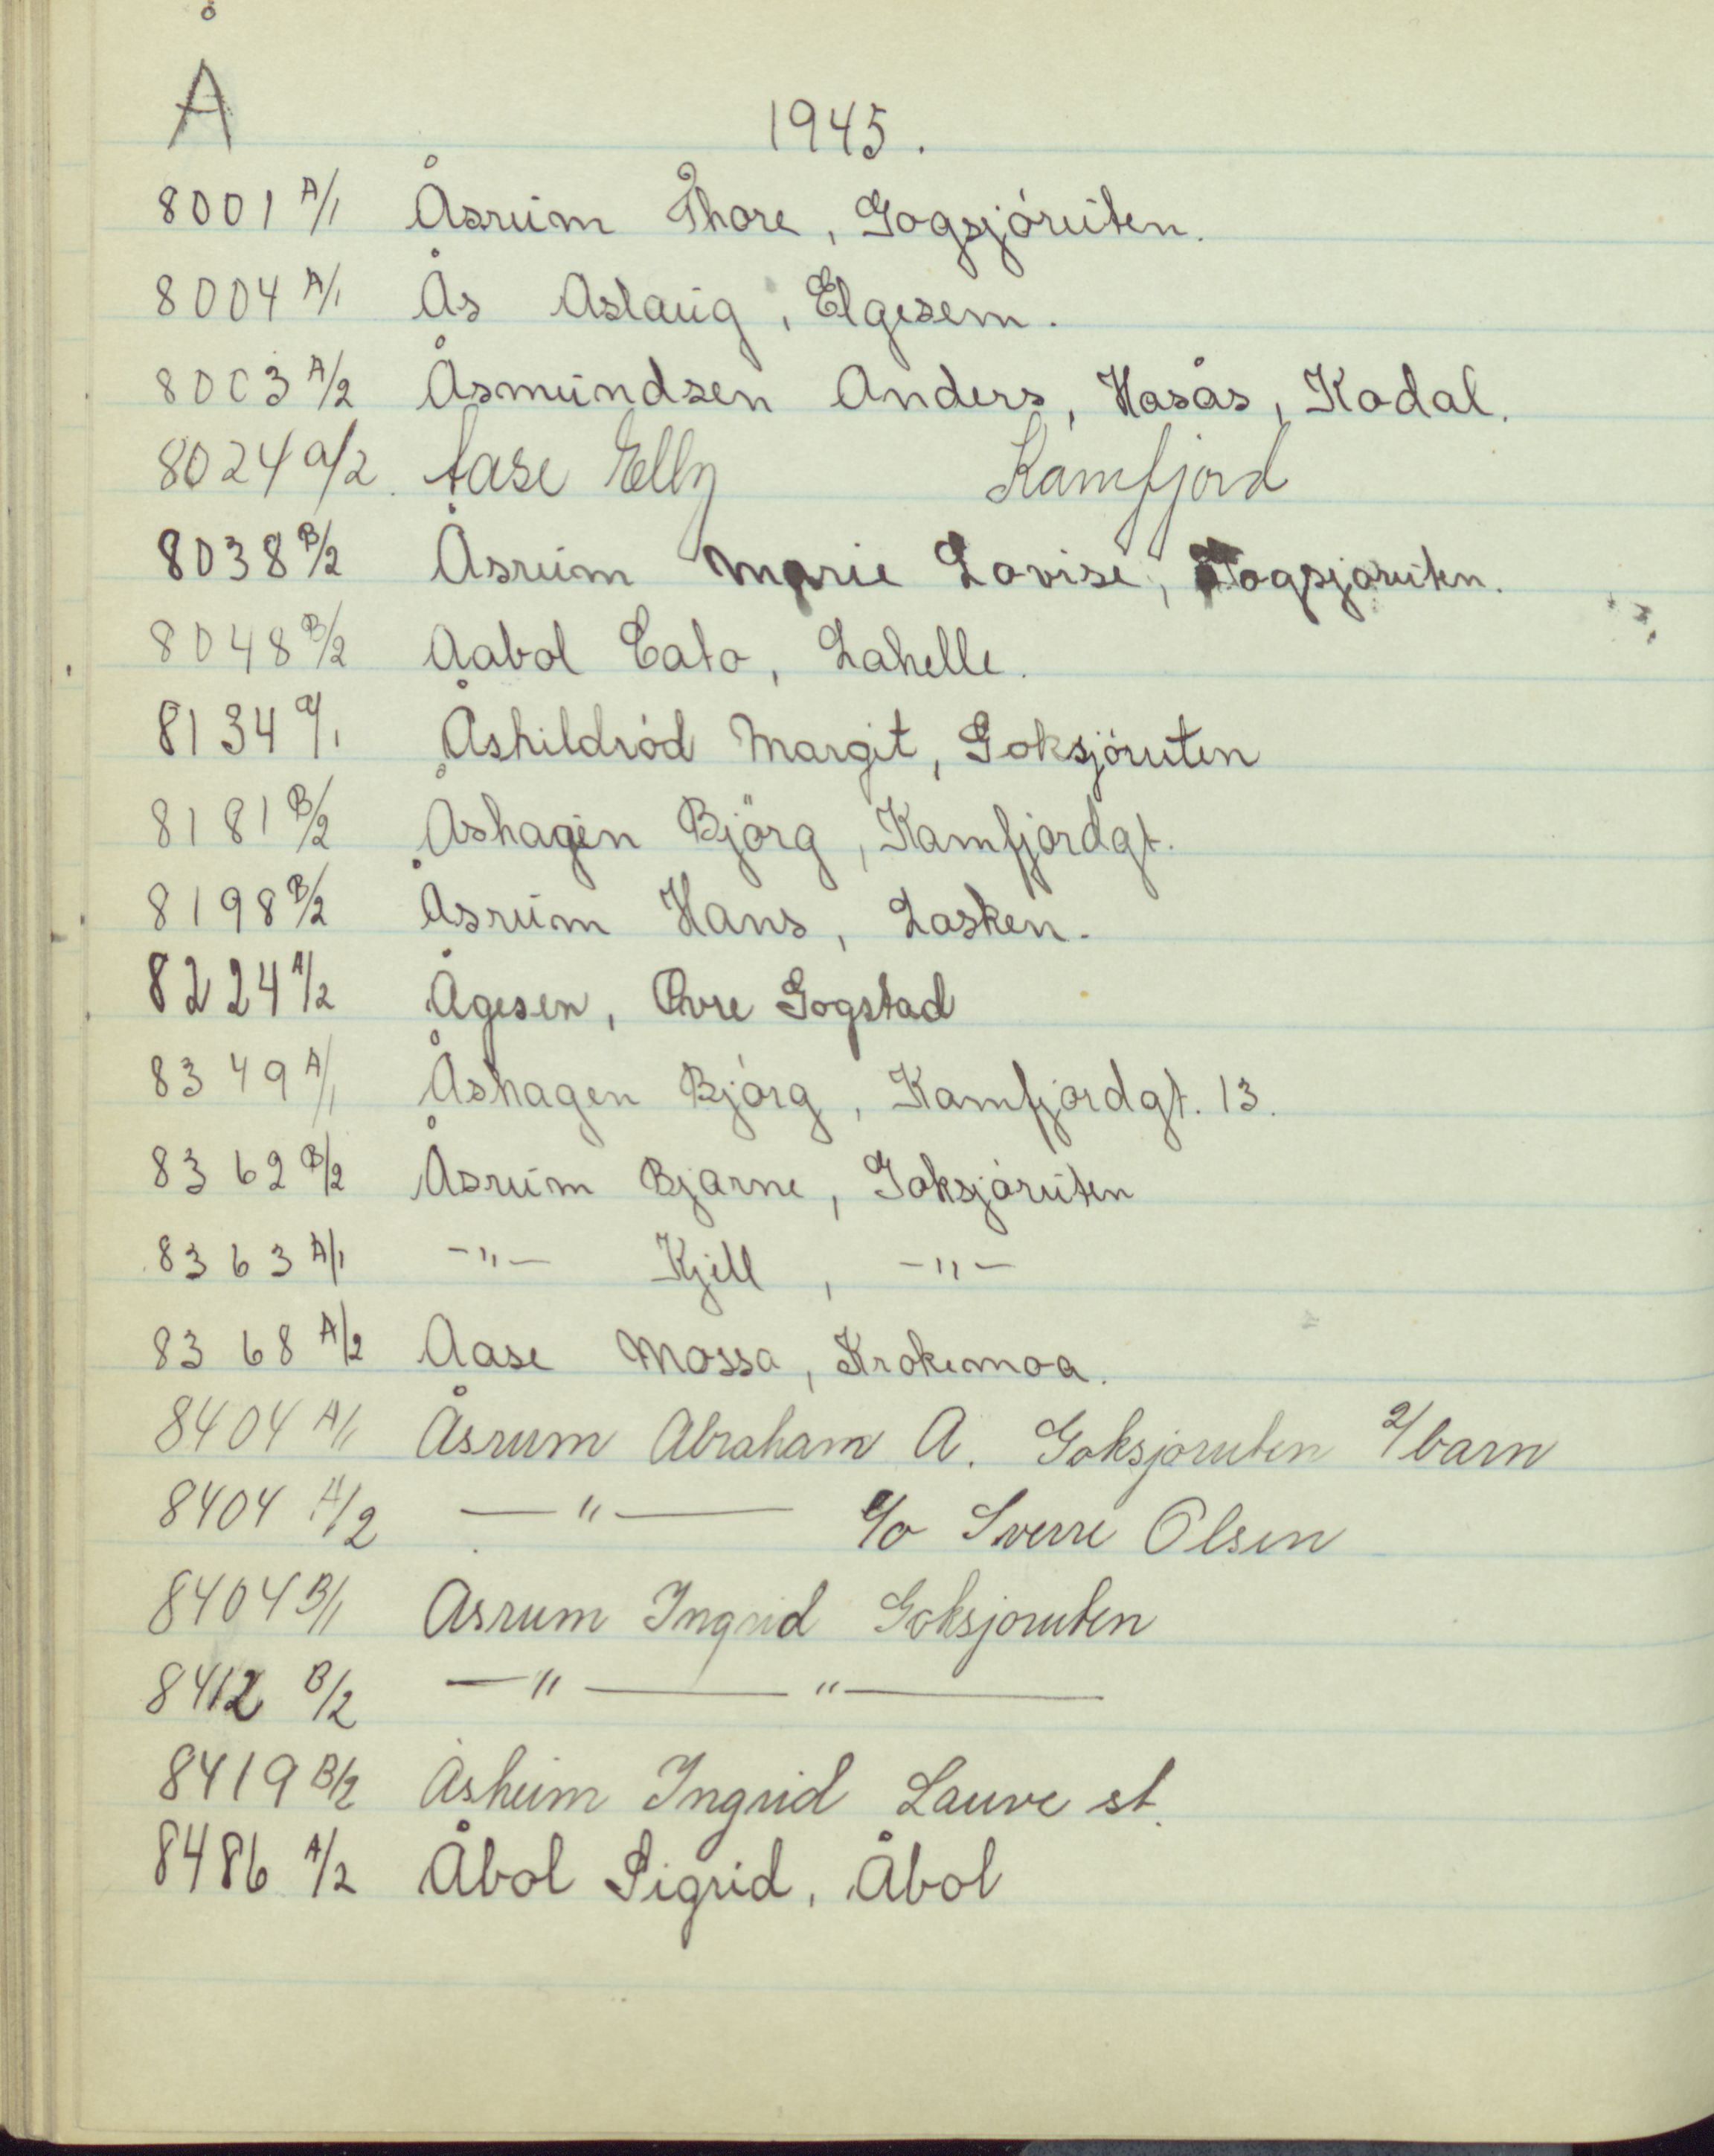 Å
1945.
8001 A/1 Åsrum Thore, Gogsjöruten.
8004 A/1 Ås Aslaug, Elgesem.
8003 A/2 Åsmundsen Anders, Hasås, Kodal.
8024 a/2. Aase Elly Kamfjord
8038 B/2 Åsrum Marie Lovise, Gogsjøruten.
8048 B/2 Aabol Cato, Lahelle.
8134 a/1. Åshildröd Margit, Goksjöruten
8181 B/2 Åshagen Björg, Kamfjordgt.
8198 B/2 Åsrum Hans, Lasken.
8224 A/2 Ågesen, Øvre Gogstad
8349 A/1 Åshagen Bjórg, Kamfjordgt. 13.
8362 B/2 Åsrum Bjarne, Goksjóruten
8363 A/1 -"- Kjell, -"-
8368 A/2 Aase Mossa, Krokemoa.
8404 A/1 Åsrum Abraham A. Goksjoruten 2/barn
8404 A/2 — " — c/o Sverre Olsen
8404 B/1 Asrum Ingrid Goksjoruten
8412 B/2 — " — " —
8419 B/2 Åsheim Ingrid Lauve st.
8486 A/2 Åbol Sigrid, Åbol